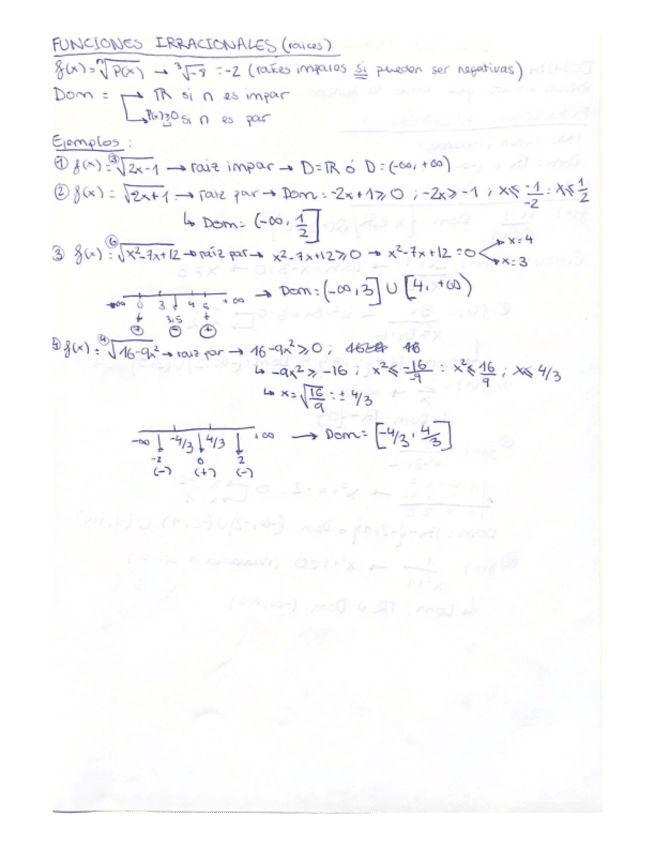 FUNCIONES IRRACIONALES (raíces)
f(x) = ⁿ√P(x) → ³√-8 = -2 (raíces impares si pueden ser negativas)
Dom = → ℝ si n es impar
→ P(x)≥0 si n es par
Ejemplos:
① f(x) = ³√2x-1 → raiz impar → D = ℝ ó D = (-∞, +∞)
② f(x) = √2x+1 → raiz par → Dom = -2x+1 ≥ 0 ; -2x ≥ -1 ; x ≤ -1/-2 = x ≤ 1/2
↳ Dom = (-∞, 1/2]
③ f(x) = ⁶√x²-7x+12 → raiz par → x²-7x+12 ≥ 0 → x²-7x+12 = 0 → x=4
→ x=3
-∞ 0 3 4 5 +∞ → Dom = (-∞, 3] ∪ [4, +∞)
3,5
(+) (-) (+)
f(x) = ⁴√16-9x² → raiz par → 16-9x² ≥ 0 ;
↳ -9x² ≥ -16 ; x² ≤ -16/-9 = x² ≤ 16/9 ; x ≤ 4/3
↳ x = √16/9 = ± 4/3
-∞ -4/3 4/3 +∞ → Dom = [-4/3, 4/3]
-2 0 2
(-) (+) (-)